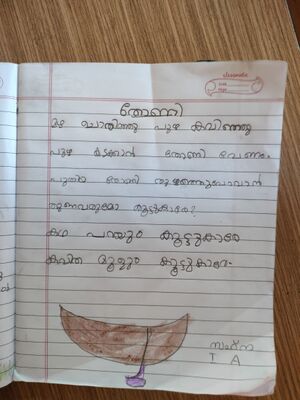 classmate
തോണി
മഴ ചൊരിഞ്ഞു പുഴ കവിഞ്ഞു
പുഴ കടക്കാൻ തോണി വേണം
പുതിയ തോണി തുഴഞ്ഞുപോവാൻ
തുണവരുമോ കൂട്ടുകാരേ?
കഥ പറയും കൂട്ടുകാരേ
കവിത മൂളും കൂട്ടുകാരേ
I A